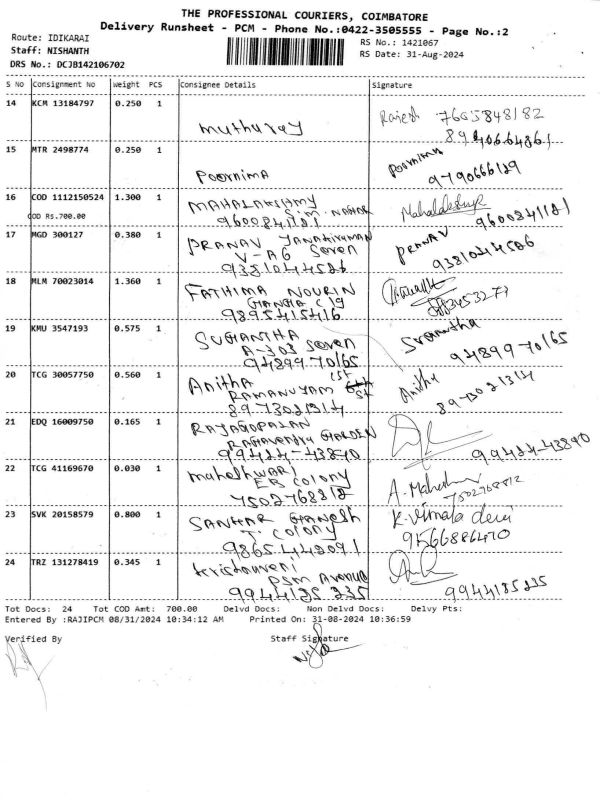 THE PROFESSIONAL COURIERS, COIMBATORE
Delivery Runsheet - PCM - Phone No.:0422-3505555 - Page No.:2
Route: IDIKARAI
RS No.: 1421067
Staff: NISHANTH
RS Date: 31-Aug-2024
DRS No.: DCJB142106702
S No Consignment No Weight PCS Consignee Details Signature
14 KCM 13184797 0.250 1
muthuray
Rajesh 7605848182
15 MTR 2498774 0.250 1
Poornima
Poornima
9790666129
16 COD 1112150524 1.300 1
COD Rs.700.00
MAHALAKSHMY
S.M. NAGAR
9600841181
Mahalakshmy
9600841181
17 MGD 300127 0.380 1
PRANAV JANAKIRAMAN
V-A6 Seven
9381044586
PRANAV
9381044586
18 MLM 70023014 1.360 1
FATHIMA NOURIN
GANGA C19
9895415416
19 KMU 3547193 0.575 1
SUGANTHA
A-303 Seven
94899-70165
Sugantha
94899 70165
20 TCG 30057750 0.560 1
Anitha 1st
RAMANUYAM St
8973021314
Anitha
8973021314
21 EDQ 16009750 0.165 1
RAJAGOPALAN
Raghavendra GARDEN
99424-43840
99424-43840
22 TCG 41169670 0.030 1
maheshwari
EB COLONY
7502768812
7502768812
23 SVK 20158579 0.800 1
SANKAR GANESH
T. COLONY
9865442091
K. Vimala devi
9566886470
24 TRZ 131278419 0.345 1
krishnaveni
PSM Avenue
9944185235
9944185235
Tot Docs: 24 Tot COD Amt: 700.00 Delvd Docs: Non Delvd Docs: Delvy Pts:
Entered By :RAJIPCM 08/31/2024 10:34:12 AM Printed On: 31-08-2024 10:36:59
Verified By Staff Signature